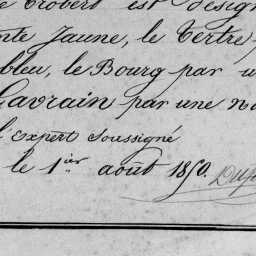 robert est désign
nte Jaune, le Tertre
bleu, le Bourg par u
Lavrain par une n
l'Expert soussigné
le 1er août 1850.